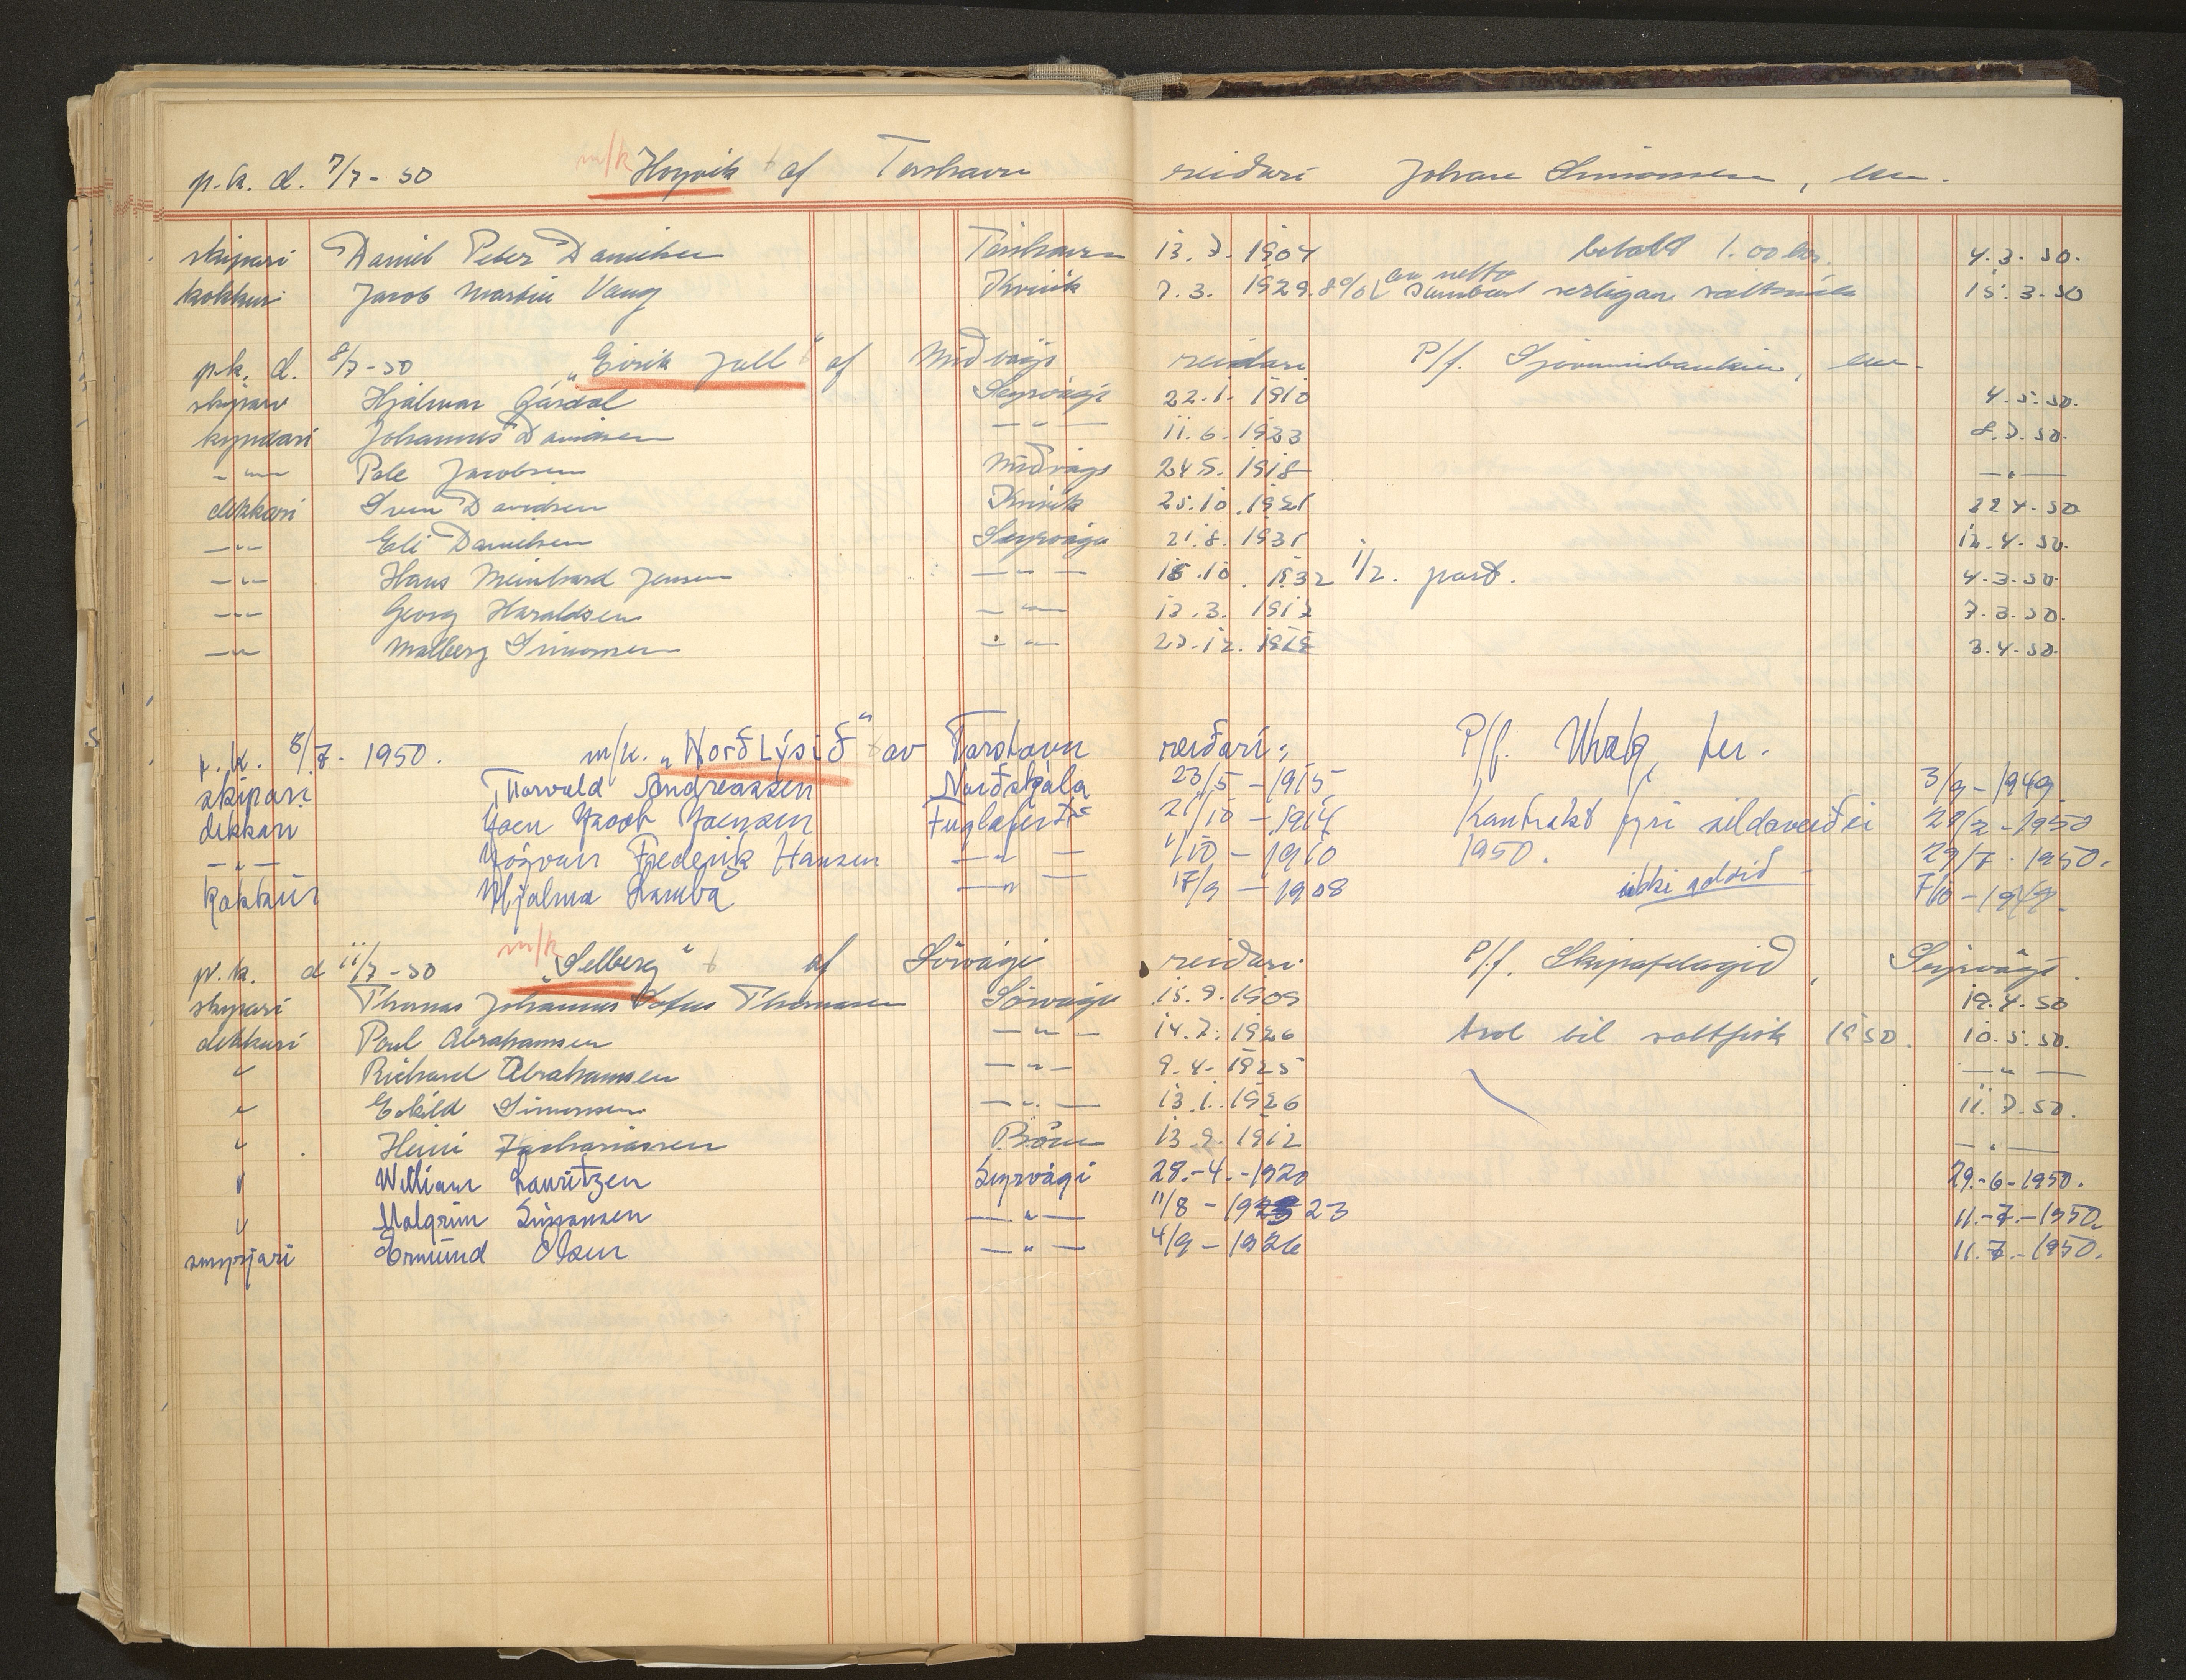 p.k. d. 7/7 - 50 m/k Hoyvik af Torshavn reiðari Johan Simonsen, her.
skipari Daniel Peter Danielsen Torshavn 13.7.1904 betalt 1.00 kr. 4.3.50.
kokkur Jacob Martin Vang Kvivik 7.3.1929. 8% av netto sambart serligan 15.3.50
p.k. d. 8/7 - 50 "Eirik Jall" af Miðvági reiðari P/f. Sjóvinnubankin, her.
skipari Hjalmar Gardal Sørvági 22.1.1910 4.5.50.
kyndari Johannus Danielsen — " — 11.6.1933 8.7.50.
— " — Pole Jacobsen Miðvági 24.5.1918 — " —
dekkari Sven Davidsen Kvivik 25.10.1921 22.4.50.
— " — Eli Danielsen Sørvági 21.8.1931 12.4.50.
— " — Hans Meinhard Jensen — " — 18.10.1932 1/2. part. 4.3.50.
— " — Georg Haraldsen — " — 13.3.1917 7.3.50.
— " — Malberg Simonsen — " — 3.4.50.
p.k. 8/7 - 1950. m/k. "Norðlýsið" av Torshavn reiðari: P/f. her.
skipari Thorvald Andreassen Norðskála 23/5 - 1915 3/9 - 1949
dekkari Joen Jacob Joensen Fuglafirði 21/10 - 1914 Kontrakt fyri sildaveiði 29/7 - 1950
— " — Jógvan Frederik Hansen — " — 1/10 - 1910 1950. 29/7 - 1950.
kokkur Hjalmar Lamba — " — 17/9 - 1908 ikki goldið 7/10 - 1949.
p.k. d 11/7 - 50 m/k "Selberg" af Sörvági reiðari P/f. Skipafelagið, Sørvági.
skipari Thomas Johannus Sofus Thomasen Sörvági 15.9.1909 19.4.50
dekkari Poul Abrahamsen — " — 14.7.1926 til saltfisk 1950. 10.5.50.
" Richard Abrahamsen — " — 9.4.1925 — " —
" Eskild Simonsen — " — 13.1.1926 11.7.50.
" Heini Zachariassen Böur 13.9.1912 — " —
" William Lauritzen Sørvági 28.-4.-1920 29.-6-1950.
" Malgrim Simonsen — " — 11/8 - 1923 23 11.-7.-1950
smyrjari Ormund Olsen — " — 4/9 - 1926 11.7.-1950.